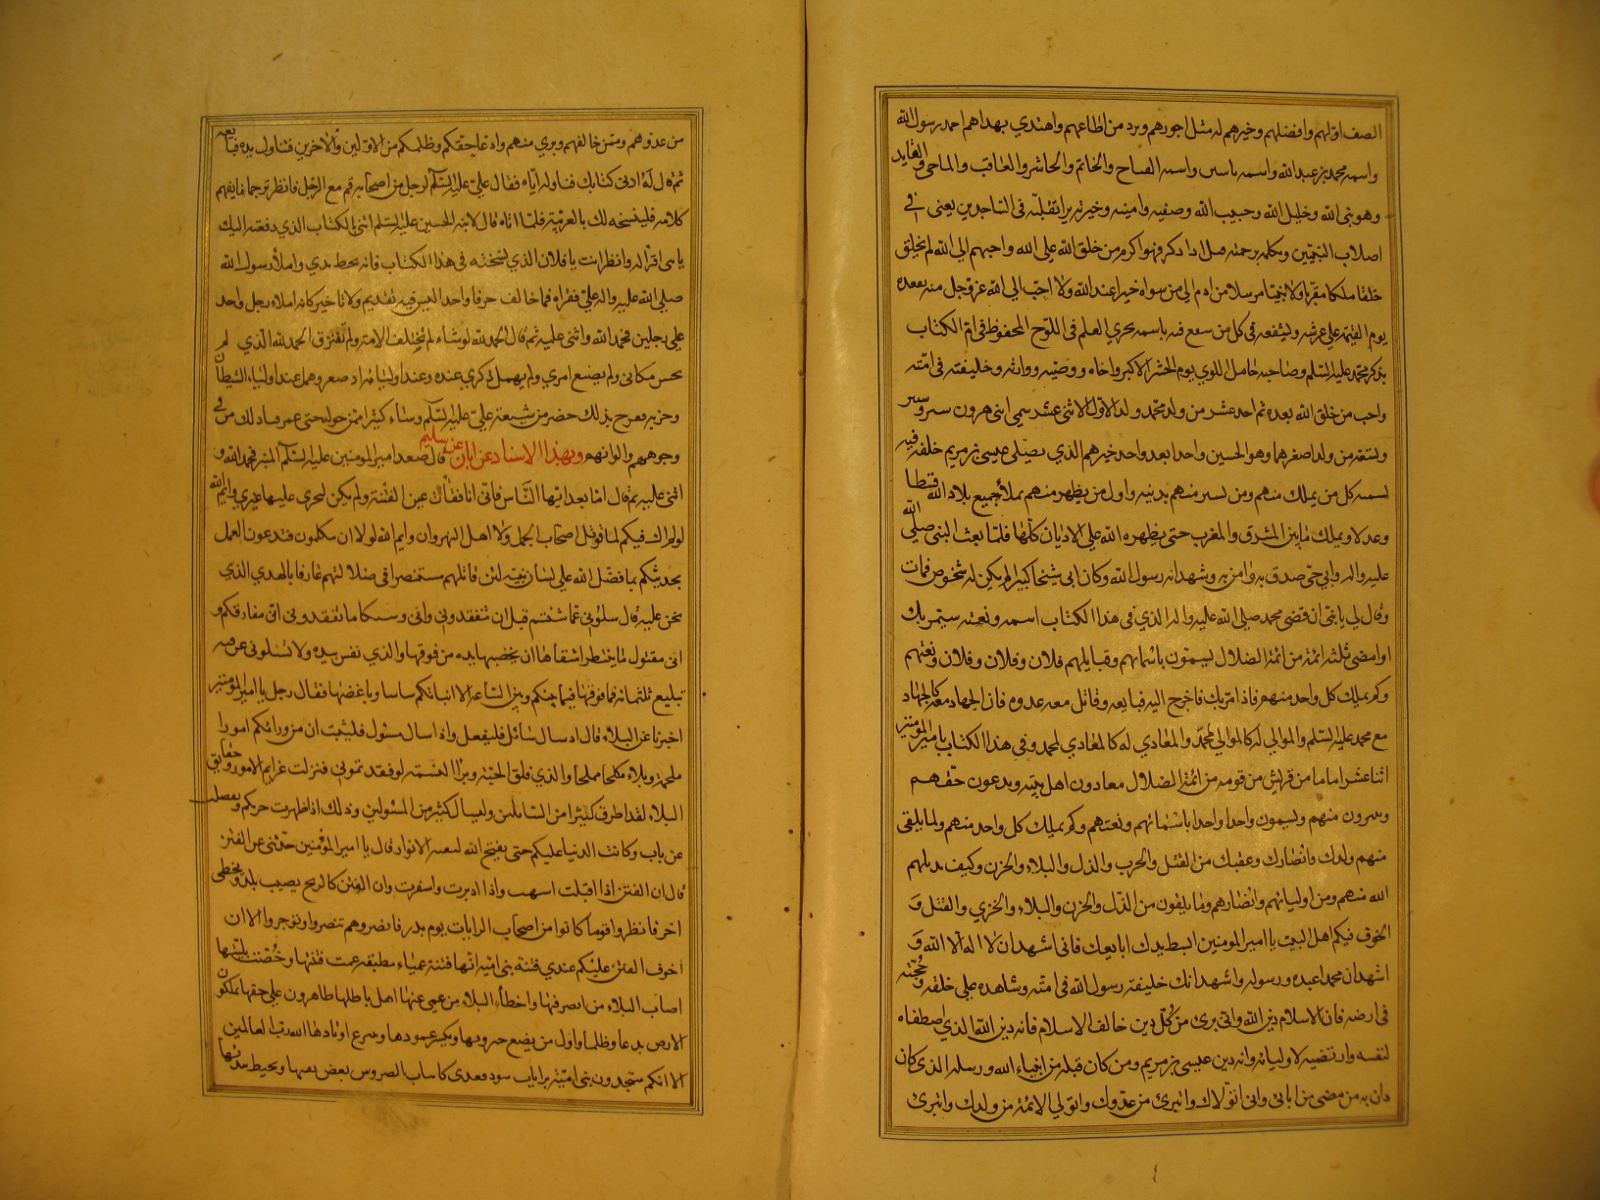 الصف اولهم وافضلهم وخيرهم له مثل اجورهم وبرد من اطاعهم واهتدي بهداهم احمد رسول الله
واسمه محمد بن عبد الله واسمه ياسين واسمه الفتاح والخاتم والحاشر والعاقب والماحي والقايد
وهو نبي الله وخليل الله وحبيب الله وصفيه وامينه وخيرته يرا تقلبه في الساجدين يعنى في
اصلاب النبيين وبكلمه برحمته فيذكر اذا ذكر فهو اكرم من خلق الله علي الله واحبهم الي الله لم يخلق
خلقا ملكا مقربا ولا نبيا مرسلا من ادم الي من سواه خيرا عند الله ولا احب الي الله عز وجل منه يقعده
يوم القيمة علي عرشه ويشفعه في كل من شفع فيه باسمه جري العلم في اللوح المحفوظ في ام الكتاب
بذكر محمد عليه السلم وصاحبه حامل اللوي يوم الحشر الاكبر واخاه ووصيه ووارثه وخليفته في امته
واحب من خلق الله بعده ثم احد عشر من ولد محمد وولد الاول الاثني عشر سمي ابني هرون شبر وشبير
وتسعة من ولد اصغرهما وهو الحسين واحدا بعد واحد خيرهم الذي يصلى عيسى بن مريم خلفه فيه
تسميه كل من يملك منهم ومن يستر منهم بدينه واول من يظهر منهم يملأ جميع بلاد الله قسطا
وعدلا ويملك مابين المشرق والمغرب حتى يظهره الله علي الاديان كلها فلما بعث النبي صلي الله
عليه واله وابي حي صدق به وامن به وشهد انه رسول الله وكان ابى شيخا كبيرا لم يكن له شخوص فمات
وقال لي يا بني ان قضي محمد صلي الله عليه واله الذي في هذا الكتاب اسمه ونعته سيمر بك
اوا مضى ثلثة ائمة من ائمة الضلال يسمون باسمائهم وقبايلهم فلان وفلان وفلان ونعتهم
وكم يملك كل واحد منهم فاذا مر بك فاخرج اليه فبايعه وقاتل معه عدوه فان الجهاد معه كالجهاد
مع محمد عليه السلم والموالي له كالموالي لمحمد والمعادي له كالمعادي لمحمد وفي هذا الكتاب يا امير المومنين
اثنا عشر اماما من قريش من قومه من ائمة الضلال معادون اهل بيته ويدعون حقهم
ويبرون منهم ويسمون واحدا واحدا باسمائهم ونعتهم وكم يملك كل واحد منهم ولما يلقى
منهم ولدك وانصارك وعقبك من القتل والحرب والذل والبلاء والحزن وكيف يديلهم
الله منهم ومن اوليائهم وانصارهم وما يلقون من الذل والحزن والبلاء والخزي والقتل و
الخوف فيكم اهل البيت يا امير المومنين ابسط يدك ابايعك فاني اشهد ان لا اله الا الله و
اشهد ان محمدا عبده ورسوله واشهد انك خليفة رسول الله في امته وشاهده علي خلقه وحجته
في ارضه فان الاسلام دين الله واني برئ من كل دين خالف الاسلام فانه دين الله الذي اصطفاه
لنفسه وارتضيه لاوليائه وانه دين عيسي بن مريم ومن كان قبله من انبياء الله ورسله الذي كان
دان به من مضى من ابائي واني اتولاك وابرئ من عدوك واتولي الائمة من ولدك وابرئ
من عدوهم وممن خالفهم وبرى منهم وادعا حقكم وظلمكم من الاولين والاخرين فتناول يده فبايعه
ثم قال له ادنى كتابك فناوله اياه فقال علي عليه السلم لرجل من اصحابه قم مع الرجل فانظر ترجمانا يفهم
كلامه فلينسخه لك بالعربية فلما اتاه قال لابنه الحسين عليه السلم ائتني بالكتاب الذي دفعته اليك
يا بنى اقراه وانظر انت يا فلان الذي نسخته في هذا الكتاب فانه بخط يدي واملأ رسول الله
صلي الله عليه واله علي فقراه فما خالف حرفا واحدا ليس فيه تقديم ولا تاخير كانه املاء رجل واحد
علي رجلين فحمد الله واثنى عليه ثم قال الحمد لله لو شاء لم يختلف الامة ولم تفترق الحمد لله الذي لم
يخس مكاني ولم يضيع امري ولم يهمل ذكري عنده وعند اوليائه اذ صغر وخمل عند اولياء الشيطان
وحزبه ففرح بذلك حضر من شيعة علي عليه السلم وساء كثيرا ممن حوله حتى عرف ذلك من في
وجوههم والوانهم وبهذا الاسناد عن ابان عن سليم قال صعد امير المومنين عليه السلم المنبر فحمد الله و
اثنى عليه ثم قال اما بعد ايها الناس فاني انا فقأت عين الفتنة ولم يكن ليجرى عليها غيري وايم الله
لو لم اك فيكم لما قوتل اصحاب الجمل ولا اهل النهروان وايم الله لولا ان تتكلمون فتدعون العمل
بحديثكم بما فضل الله علي لسان نبيه لمن قاتلهم مستبصرا في ضلالتهم عارفا بالهدي الذي
نحن عليه قال سلوني عما شئتم قبل ان تفقدوني واني وسيكا ما تفقدوني اني مفارقكم و
انى مقتول ما ينتظر اشقاها ان يخضبها بدم من فوقها والذي نفسي بيده ولا تسئلوني عن فئة
تبليغ ثلثمائة فما فوقها فيما بينكم وبين الساعة الا انباتكم بسائقها وناعقها فقال رجل يا امير المومنين
اخبرنا عن البلاء قال اذ سال سائل فليفعل واذا سال مسئول فليثبت ان من ورائكم امورا
ملتجة وبلاء مكلحا مملحا والذي فلق الحبة وبرأ النسمة لو فقدتموني فنزلت غرايم الامور وحقايق
البلاء لقد اطرق كثيرا من السائلين ولفشل كثير من المسئولين وذلك اذا ظهرت حربكم ونصلت
عن ناب وكانت الدنيا عليكم حتى يفتح الله لبقية الابرار قال يا امير المؤمنين حدثنى عن الفتن
قال ان الفتن اذا اقبلت اشبهت واذا ادبرت واسفرت وان الفتن كالريح يصيب بلدا ويخطى
اخر فانظروا قوما كانوا من اصحاب الرايات يوم بدر فانصروهم تنصروا وتوجروا الا ان
اخوف الفتن عليكم عندي فتنة بني امية انها فتنة عمياء مطبقة عمت فتنتها وخصت بليتها
اصاب البلاء من ابصر فيها واخطأ البلاء من عمي عنها اهل باطلها ظاهرون علي حقها يملكون
الارض بدعا وظلما واول من يضع جبروتها ويكسر عمودها وينزع اوتادها الله رب العالمين
الا انكم ستجدون بني امية ارباب سوء بعدى كالناب الضروس تعض بفيها وتخبط بيديها